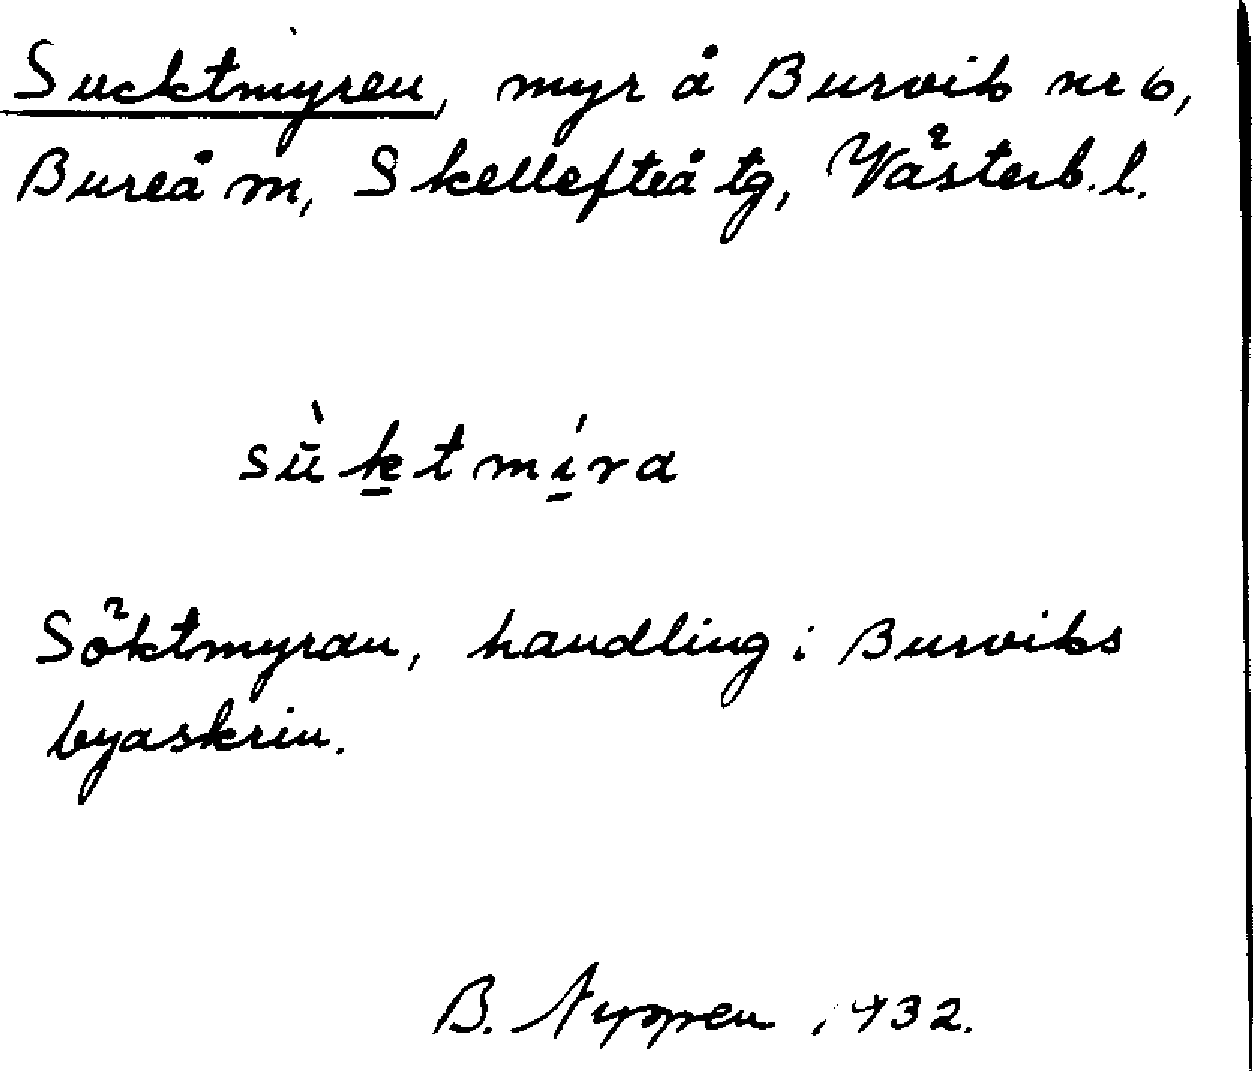 Sucktmyren, myr å Burvik nr 6,
Bureå m, Skellefteå tg, Västerb. l.
sū̀k̲tmí̲ra
Söktmyran, handling i Burviks
byaskrin.
B. Nyppen 1932.